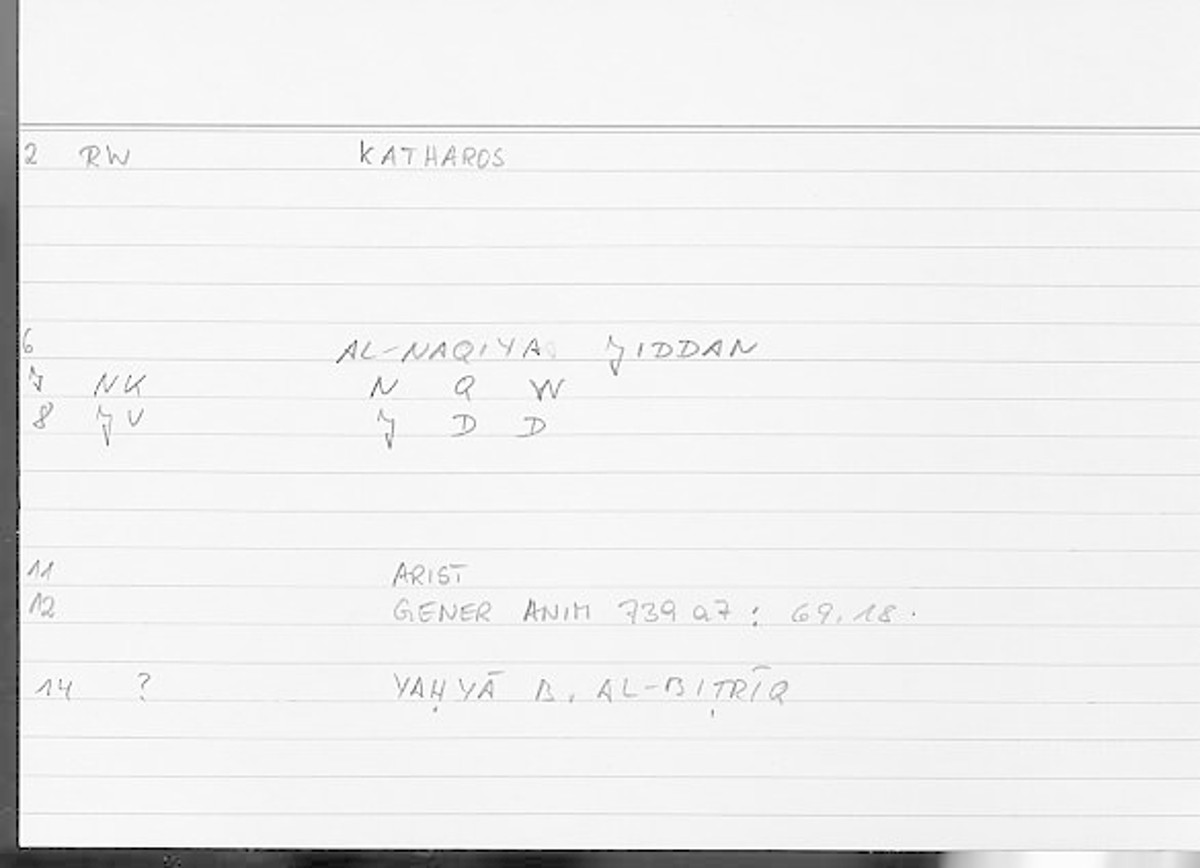 2 RW KATHAROS
6 AL-NAQIYA JIDDAN
7 NK N Q W
8 JV J D D
11 ARIST
12 GENER ANIM 739 a7 : 69.18.
14 ? YAḤYĀ B. AL-BIṬRĪQ